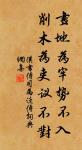 畫地為牢勢不入
削木為吏議不對
漢書傳司馬遷傳詞典
網集